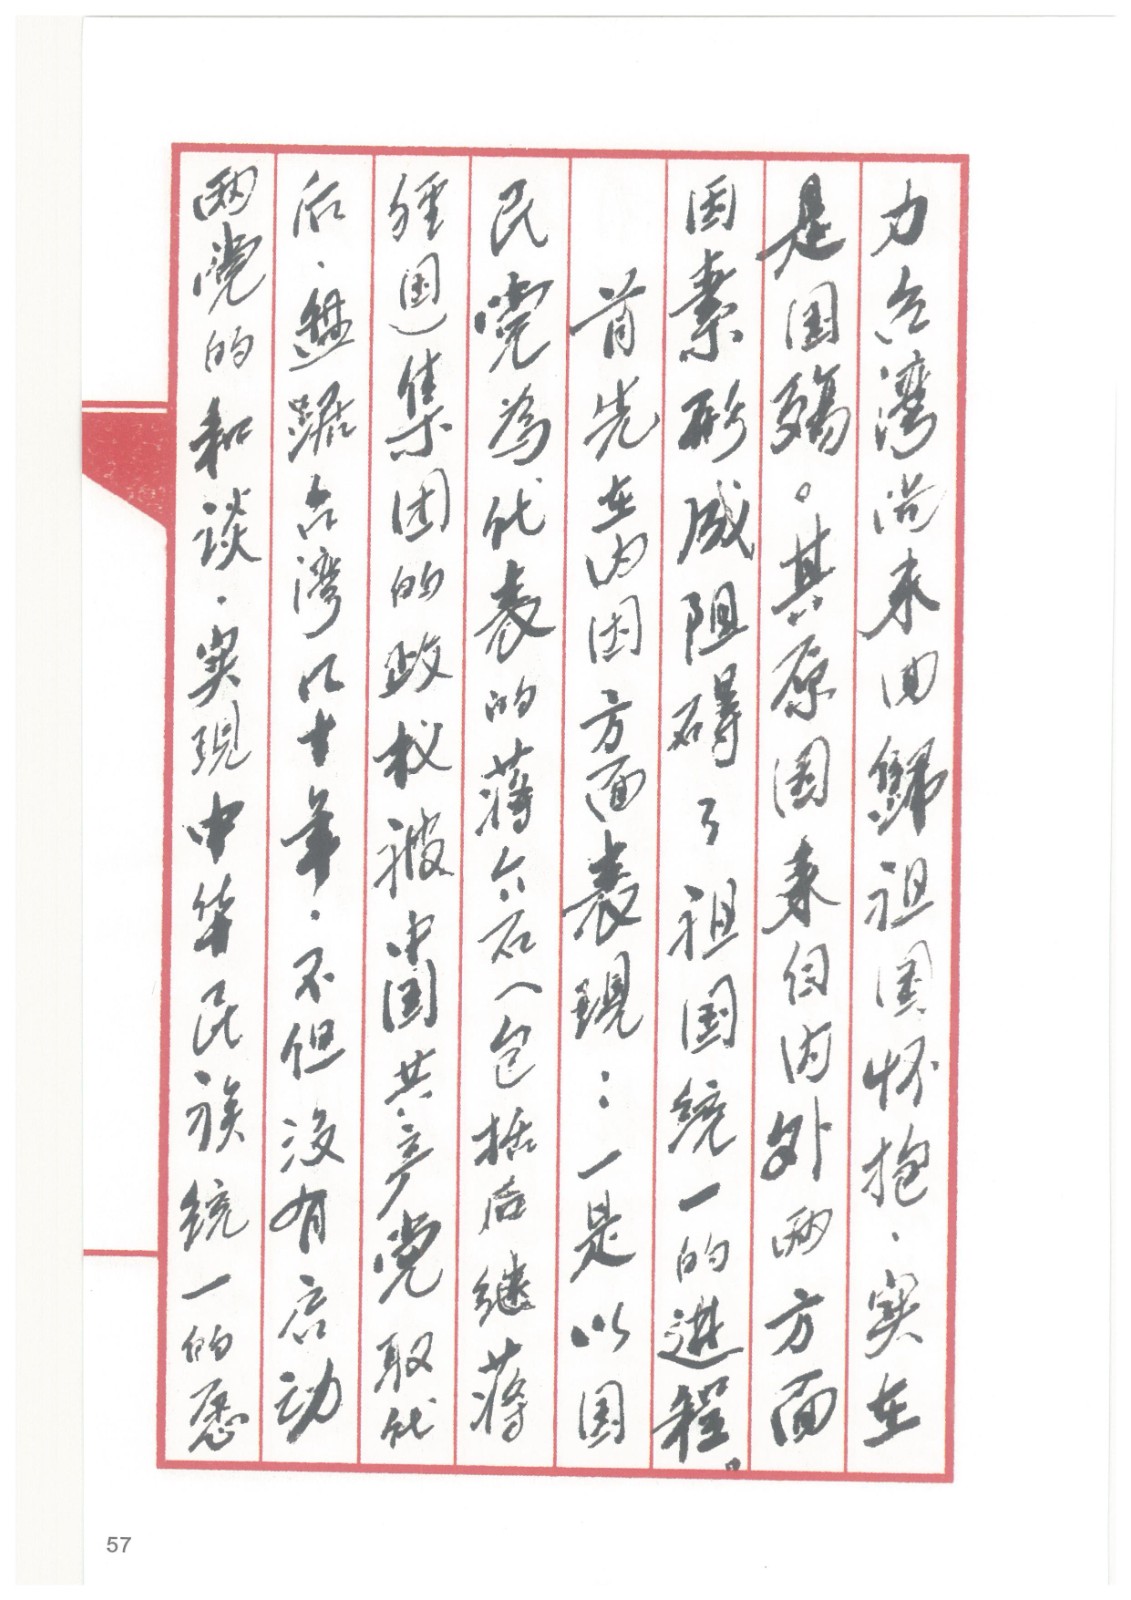 力台湾尚未回歸祖国怀抱．实在
是国殇。其原因来自内外两方面
因素形成阻碍了祖国统一的进程。
首先在内因方面表現：一是以国
民党為代表的蒋介石（包括后继蒋
经国）集团的政权被中国共产党取代
后．盘踞台湾几十年．不但没有启动
两党的和谈．实現中华民族统一的愿
57